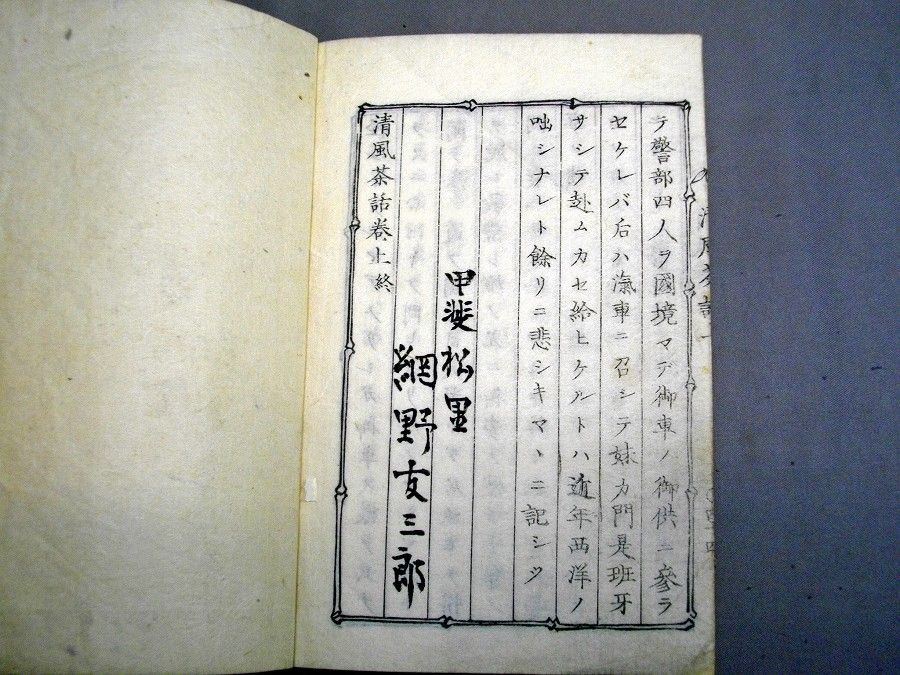 テ警部四人ヲ國境マデ御車ノ御供ニ參ラ
セケレバ后ハ滊車ニ召シテ妹カ門是班牙
サシテ赴ムカセ給ヒケルトハ近年西洋ノ
咄シナレト餘リニ悲シキマヽニ記シツ
甲斐松里
網野友三郎
清風茶話卷上終
清風茶話